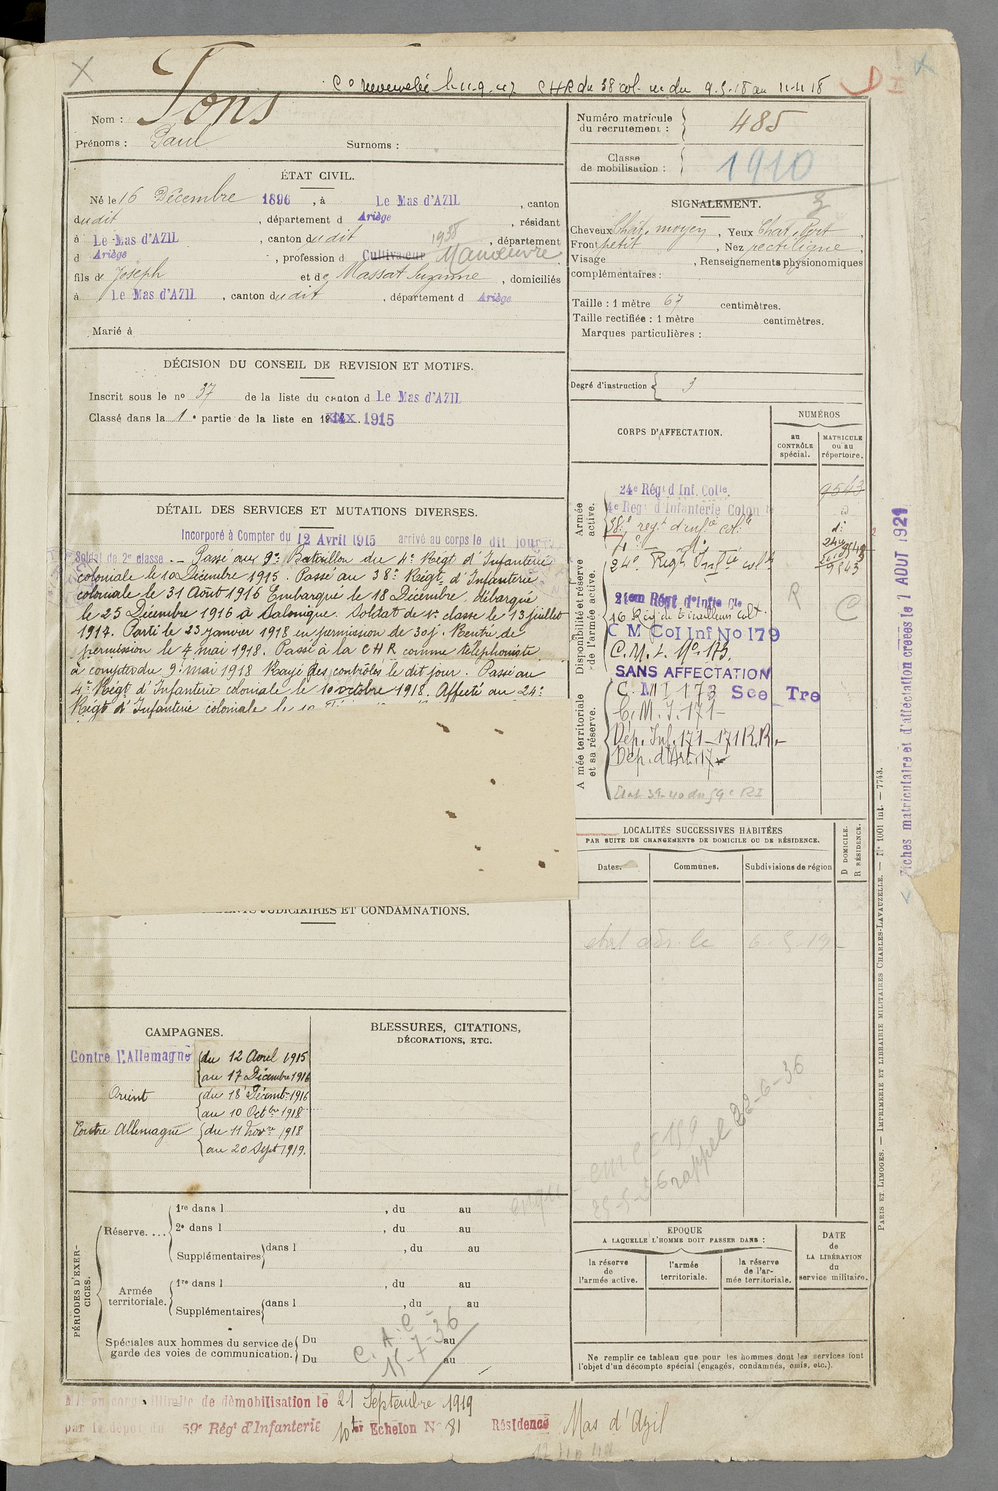 Co renouvelée le 11-9-47 CHR du 38 col. du 9-5-18 au 11-11-18 D
Nom : Pons
Prénoms : Paul Surnoms :
Numéro matricule du recrutement : 485
Classe de mobilisation : 1910
ÉTAT CIVIL.
Né le 16 Décembre 1896, à Le Mas d'AZIL, canton
dudit, département d Ariège, résidant
à Le Mas d'AZIL, canton dudit, département
1938
d Ariège, profession d Cultivateur Manœuvre
fils de Joseph et de Massat Suzanne, domiciliés
à Le Mas d'AZIL, canton dudit, département d Ariège
Marié à
SIGNALEMENT.
Cheveux Chat. moyen, Yeux Chat.
Front petit, Nez rectiligne
Visage , Renseignements physionomiques
complémentaires :
Taille : 1 mètre 67 centimètres.
Taille rectifiée : 1 mètre centimètres.
Marques particulières :
Degré d'instruction 3
DÉCISION DU CONSEIL DE REVISION ET MOTIFS.
Inscrit sous le no 37 de la liste du canton d Le Mas d'AZIL
Classé dans la 1e partie de la liste en 1915
DÉTAIL DES SERVICES ET MUTATIONS DIVERSES.
Incorporé à Compter du 12 Avril 1915 arrivé au corps le dit jour
Soldat de 2e classe. — Passé au 9e Bataillon du 4e Régt d'Infanterie
coloniale le 10 Décembre 1915. Passé au 38e Régt d'Infanterie
coloniale le 31 Août 1916 Embarqué le 18 Décembre, débarqué
le 25 Décembre 1916 à Salonique. Soldat de 1e classe le 13 juillet
1917. Parti le 23 janvier 1918 en permission de 30j. Rentré de
permission le 4 mai 1918. Passé à la CHR comme téléphoniste
à compter du 9 mai 1918 Rayé des contrôles le dit jour. Passé au
4e Régt d'Infanterie coloniale le 10 octobre 1918. Affecté au 24e
Régt d'Infanterie coloniale le
CORPS D'AFFECTATION.
NUMÉROS
au CONTRÔLE spécial.
MATRICULE ou au répertoire.
Armée active.
24e Régt d'Inf. Colle. 9543
4e Régt d'Infanterie Colon
38e regt d'infie colle
24e Régt Infie colle 9543
Disponibilité et réserve de l'armée active.
21em Régt d'Infie Cle
16 Rég de Tirailleurs Col.
C M Col Inf No 179
C. M. I. No 173.
SANS AFFECTATION
R
C
Armée territoriale et sa réserve.
C. M I 173 See Tre
C. M. I. 171
Dép. Inf. 171 - 171 R.R.
Dép. d'Art. 17
Etat 39-40 du 59e RI
LOCALITÉS SUCCESSIVES HABITÉES
PAR SUITE DE CHANGEMENTS DE DOMICILE OU DE RÉSIDENCE.
Dates. Communes. Subdivisions de région
D DOMICILE.
R RÉSIDENCE.
ANTÉCÉDENTS JUDICIAIRES ET CONDAMNATIONS.
CAMPAGNES.
Contre l'Allemagne du 12 Avril 1915
au 17 Décembre 1916
Orient du 18 Décemb. 1916
au 10 Octbre 1918
Contre Allemagne du 11 Novre 1918
au 20 Sept 1919.
BLESSURES, CITATIONS,
DÉCORATIONS, ETC.
rappel 22-6-36
PÉRIODES D'EXERCICES.
Réserve....
1re dans l , du au
2e dans l , du au
Supplémentaires dans l , du au
Armée territoriale.
1re dans l , du au
Supplémentaires dans l , du au
Spéciales aux hommes du service de garde des voies de communication.
Du au
Du au
C. A. C
15-7-36
EPOQUE
A LAQUELLE L'HOMME DOIT PASSER DANS :
la réserve de l'armée active.
l'armée territoriale.
la réserve de l'armée territoriale.
DATE de LA LIBÉRATION du service militaire.
Ne remplir ce tableau que pour les hommes dont les services font
l'objet d'un décompte spécial (engagés, condamnés, omis, etc.).
démobilisation le 21 Septembre 1919
par le dépôt du 59e Régt d'Infanterie 10e Echelon No 81 Résidence Mas d'Azil
Fiches matriculaire et d'affectation créées le 1 AOUT 1921
PARIS ET LIMOGES. — IMPRIMERIE ET LIBRAIRIE MILITAIRES CHARLES-LAVAUZELLE. — No 1001 int. — 7743.